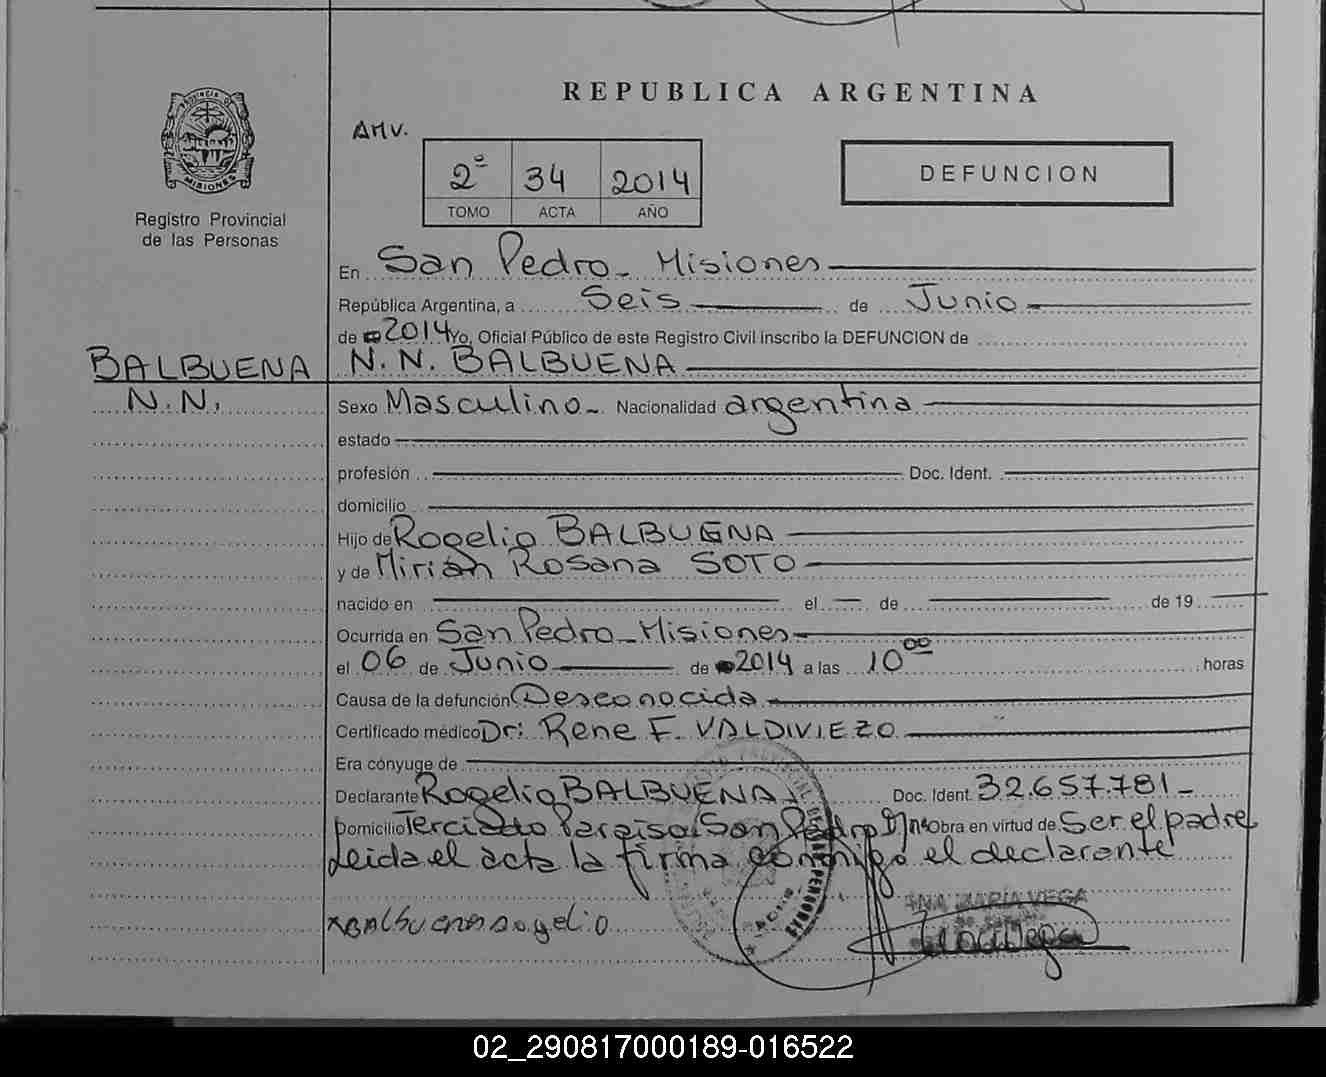 REPUBLICA ARGENTINA
PROVINCIA DE MISIONES
Registro Provincial
de las Personas
AMV.
2º 34 2014
TOMO ACTA AÑO
DEFUNCION
En San Pedro - Misiones
República Argentina, a Seis de Junio
de 2014 Yo, Oficial Público de este Registro Civil Inscribo la DEFUNCION de
BALBUENA N.N. BALBUENA
N.N,
Sexo Masculino - Nacionalidad argentina
estado
profesión Doc. Ident.
domicilio
Hijo de Rogelio BALBUENA
y de Mirian Rosana SOTO
nacido en el de de 19
Ocurrida en San Pedro - Misiones
el 06 de Junio de 2014 a las 10 00 horas
Causa de la defunción Desconocida
Certificado médico Dr: Rene F. VALDIVIEZO
Era cónyuge de
Declarante Rogelio BALBUENA - Doc. Ident. 32.657.781 -
Domicilio Terciado Paraiso San Pedro Mnes Obra en virtud de Ser el padre
Leida el acta la firma conmigo el declarante
x BALBUENA Rogelio
ANA MARÍA VEGA
02_290817000189-016522